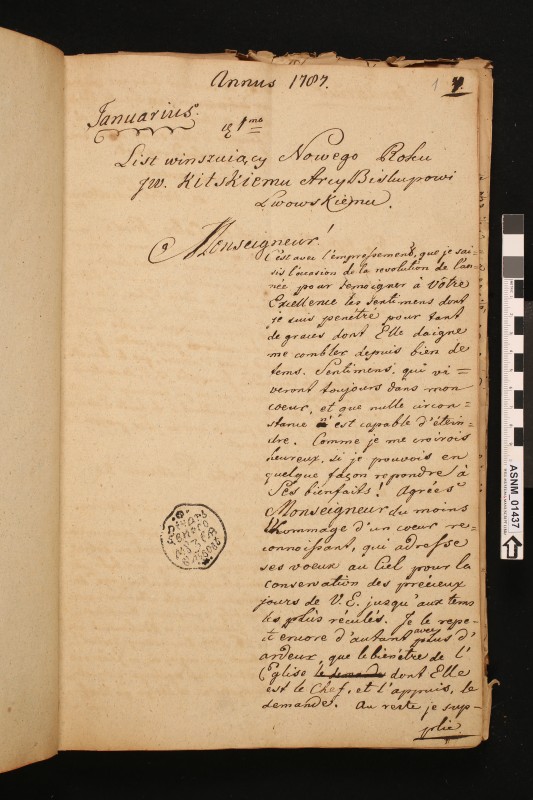 Annus 1787.
1 4.
Januarius.
1ma
List winszuiący Nowego Roku
JW. Kitskiemu ArcyBiskupowi
Lwowskiemu.
Monseigneur!
C'est avec l'empressement, que je sai-
sis l'occasion de la revolution de l'an-
née pour temoigner à Votre
Excellence les sentimens dont
je suis penetré pour tant
de graces dont Elle daigne
me combler depuis bien de
tems. Sentimens, qui vi=
veront toujours dans mon
coeur, et que nulle circon=
stance n'est capable d'étein-
dre. Comme je me croirois
heureux, si je pouvois en
quelque façon repondre à
Ses bienfaits! Agrées
Monseigneur du moins
l'hommage d'un coeur re-
connoissant, qui adresse
ses voeux au Ciel pour la
conservation des précieux
jours de V. E. jusqu'aux tems
les plus réculés. Je le repe-
it encore d'autant avec plus d'
ardeur, que le bienêtre de l'
Eglise le demande dont Elle
est le Chef, et l'appuis, le
demande. Au reste je sup-
plie
ASNM_01437